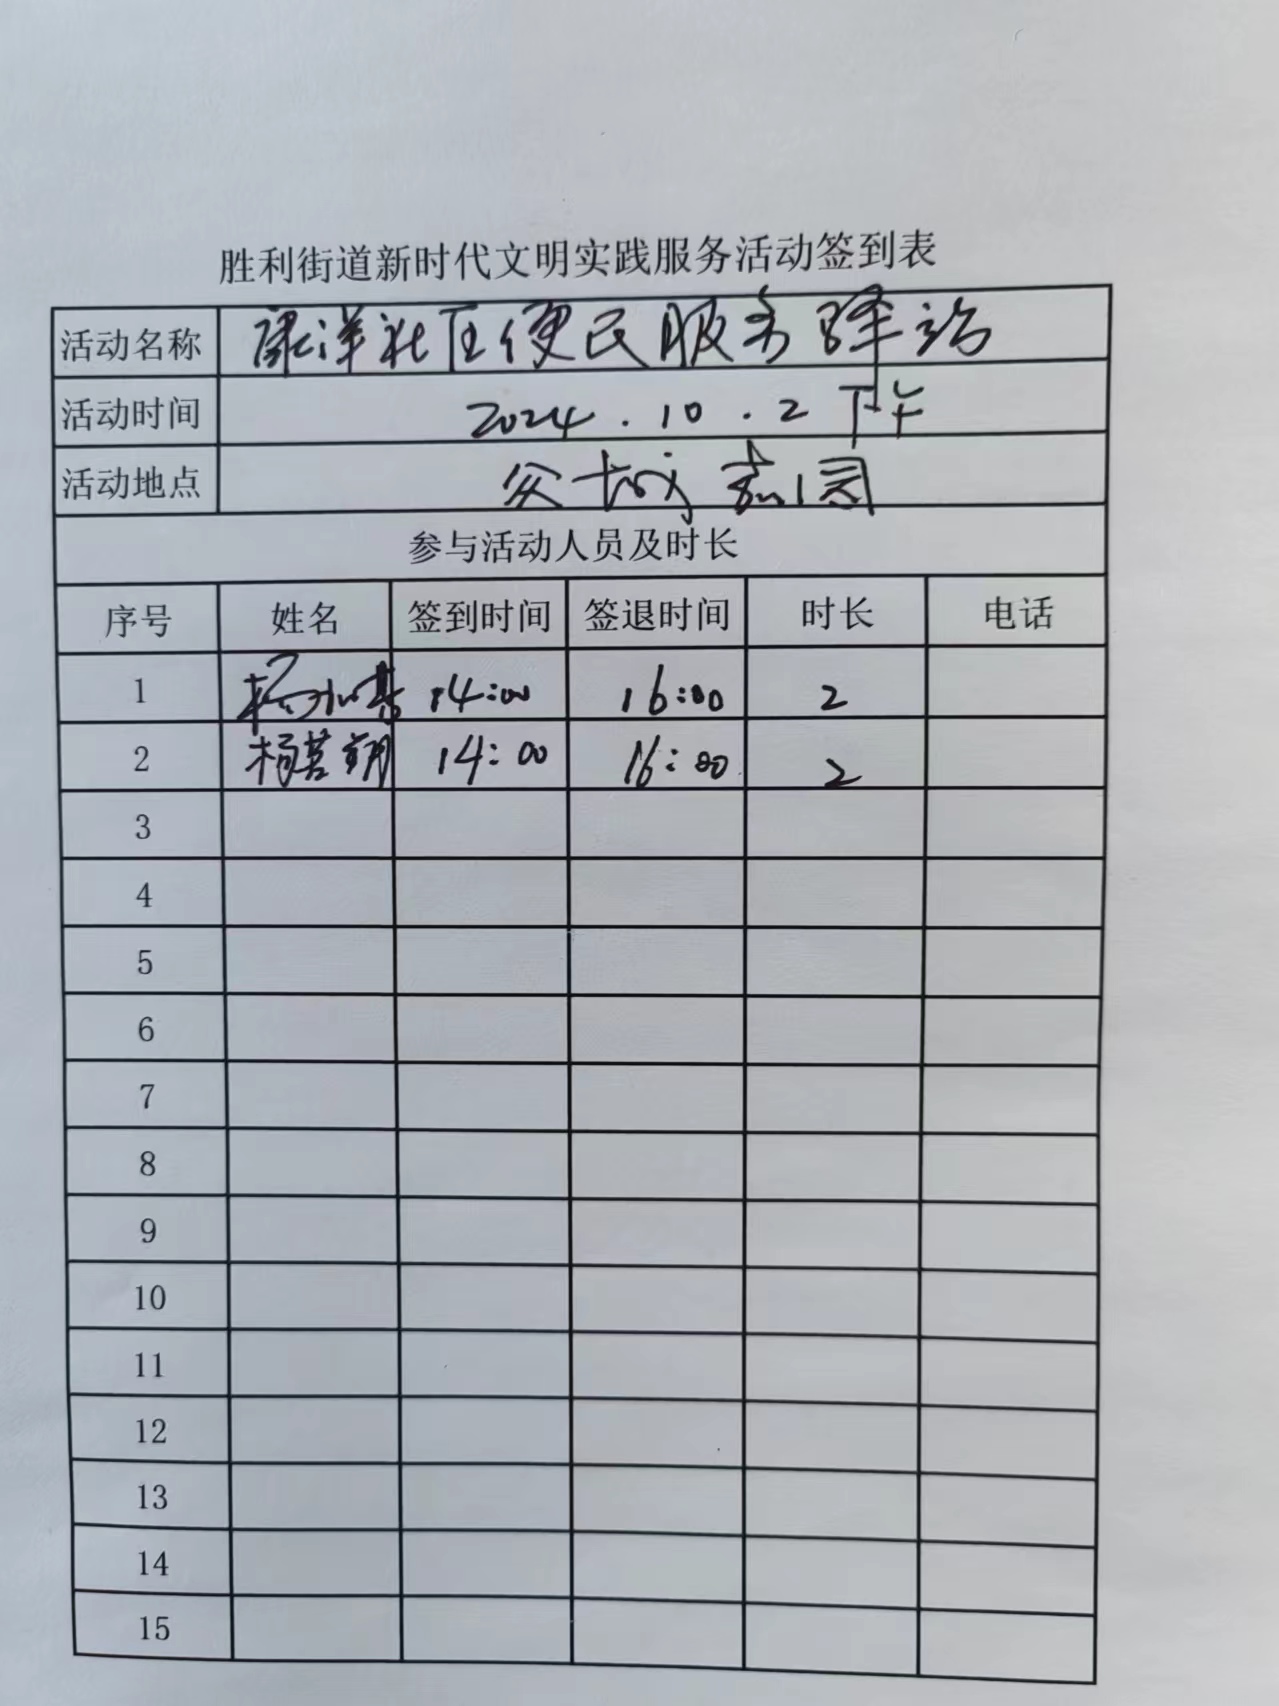 胜利街道新时代文明实践服务活动签到表
活动名称 康洋社区便民服务驿站
活动时间 2024.10.2 下午
活动地点 城嘉园
参与活动人员及时长
序号 姓名 签到时间 签退时间 时长 电话
1 杨 14:00 16:00 2
2 杨茗翔 14:00 16:00 2
3
4
5
6
7
8
9
10
11
12
13
14
15